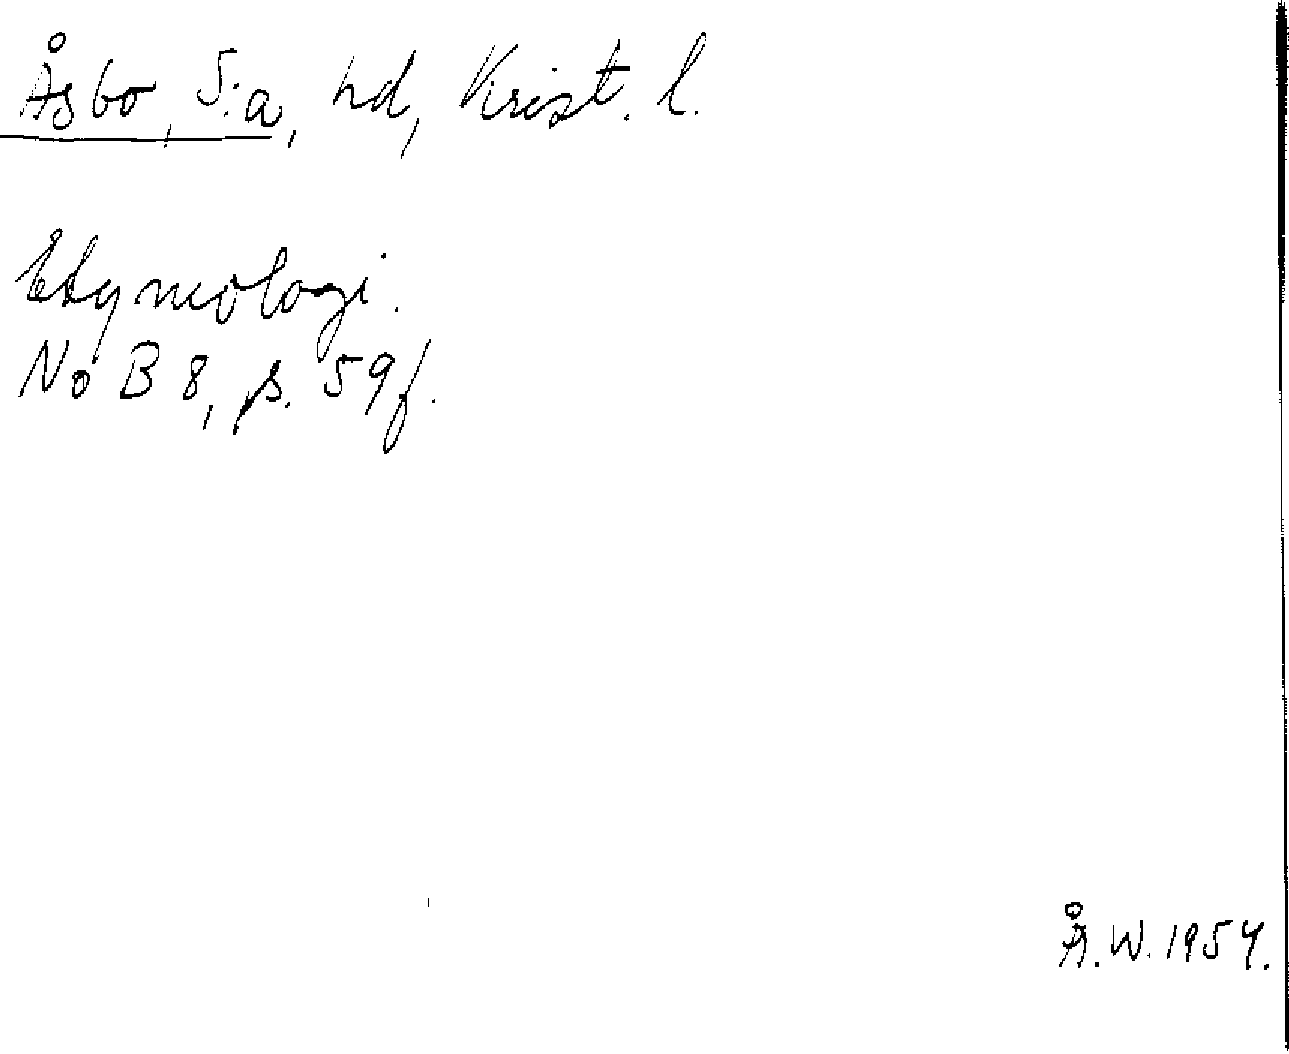 Åsbo, S:a, hd, Krist. l.
Etymologi.
NoB 8, s. 59 f.
Å.W. 1954.